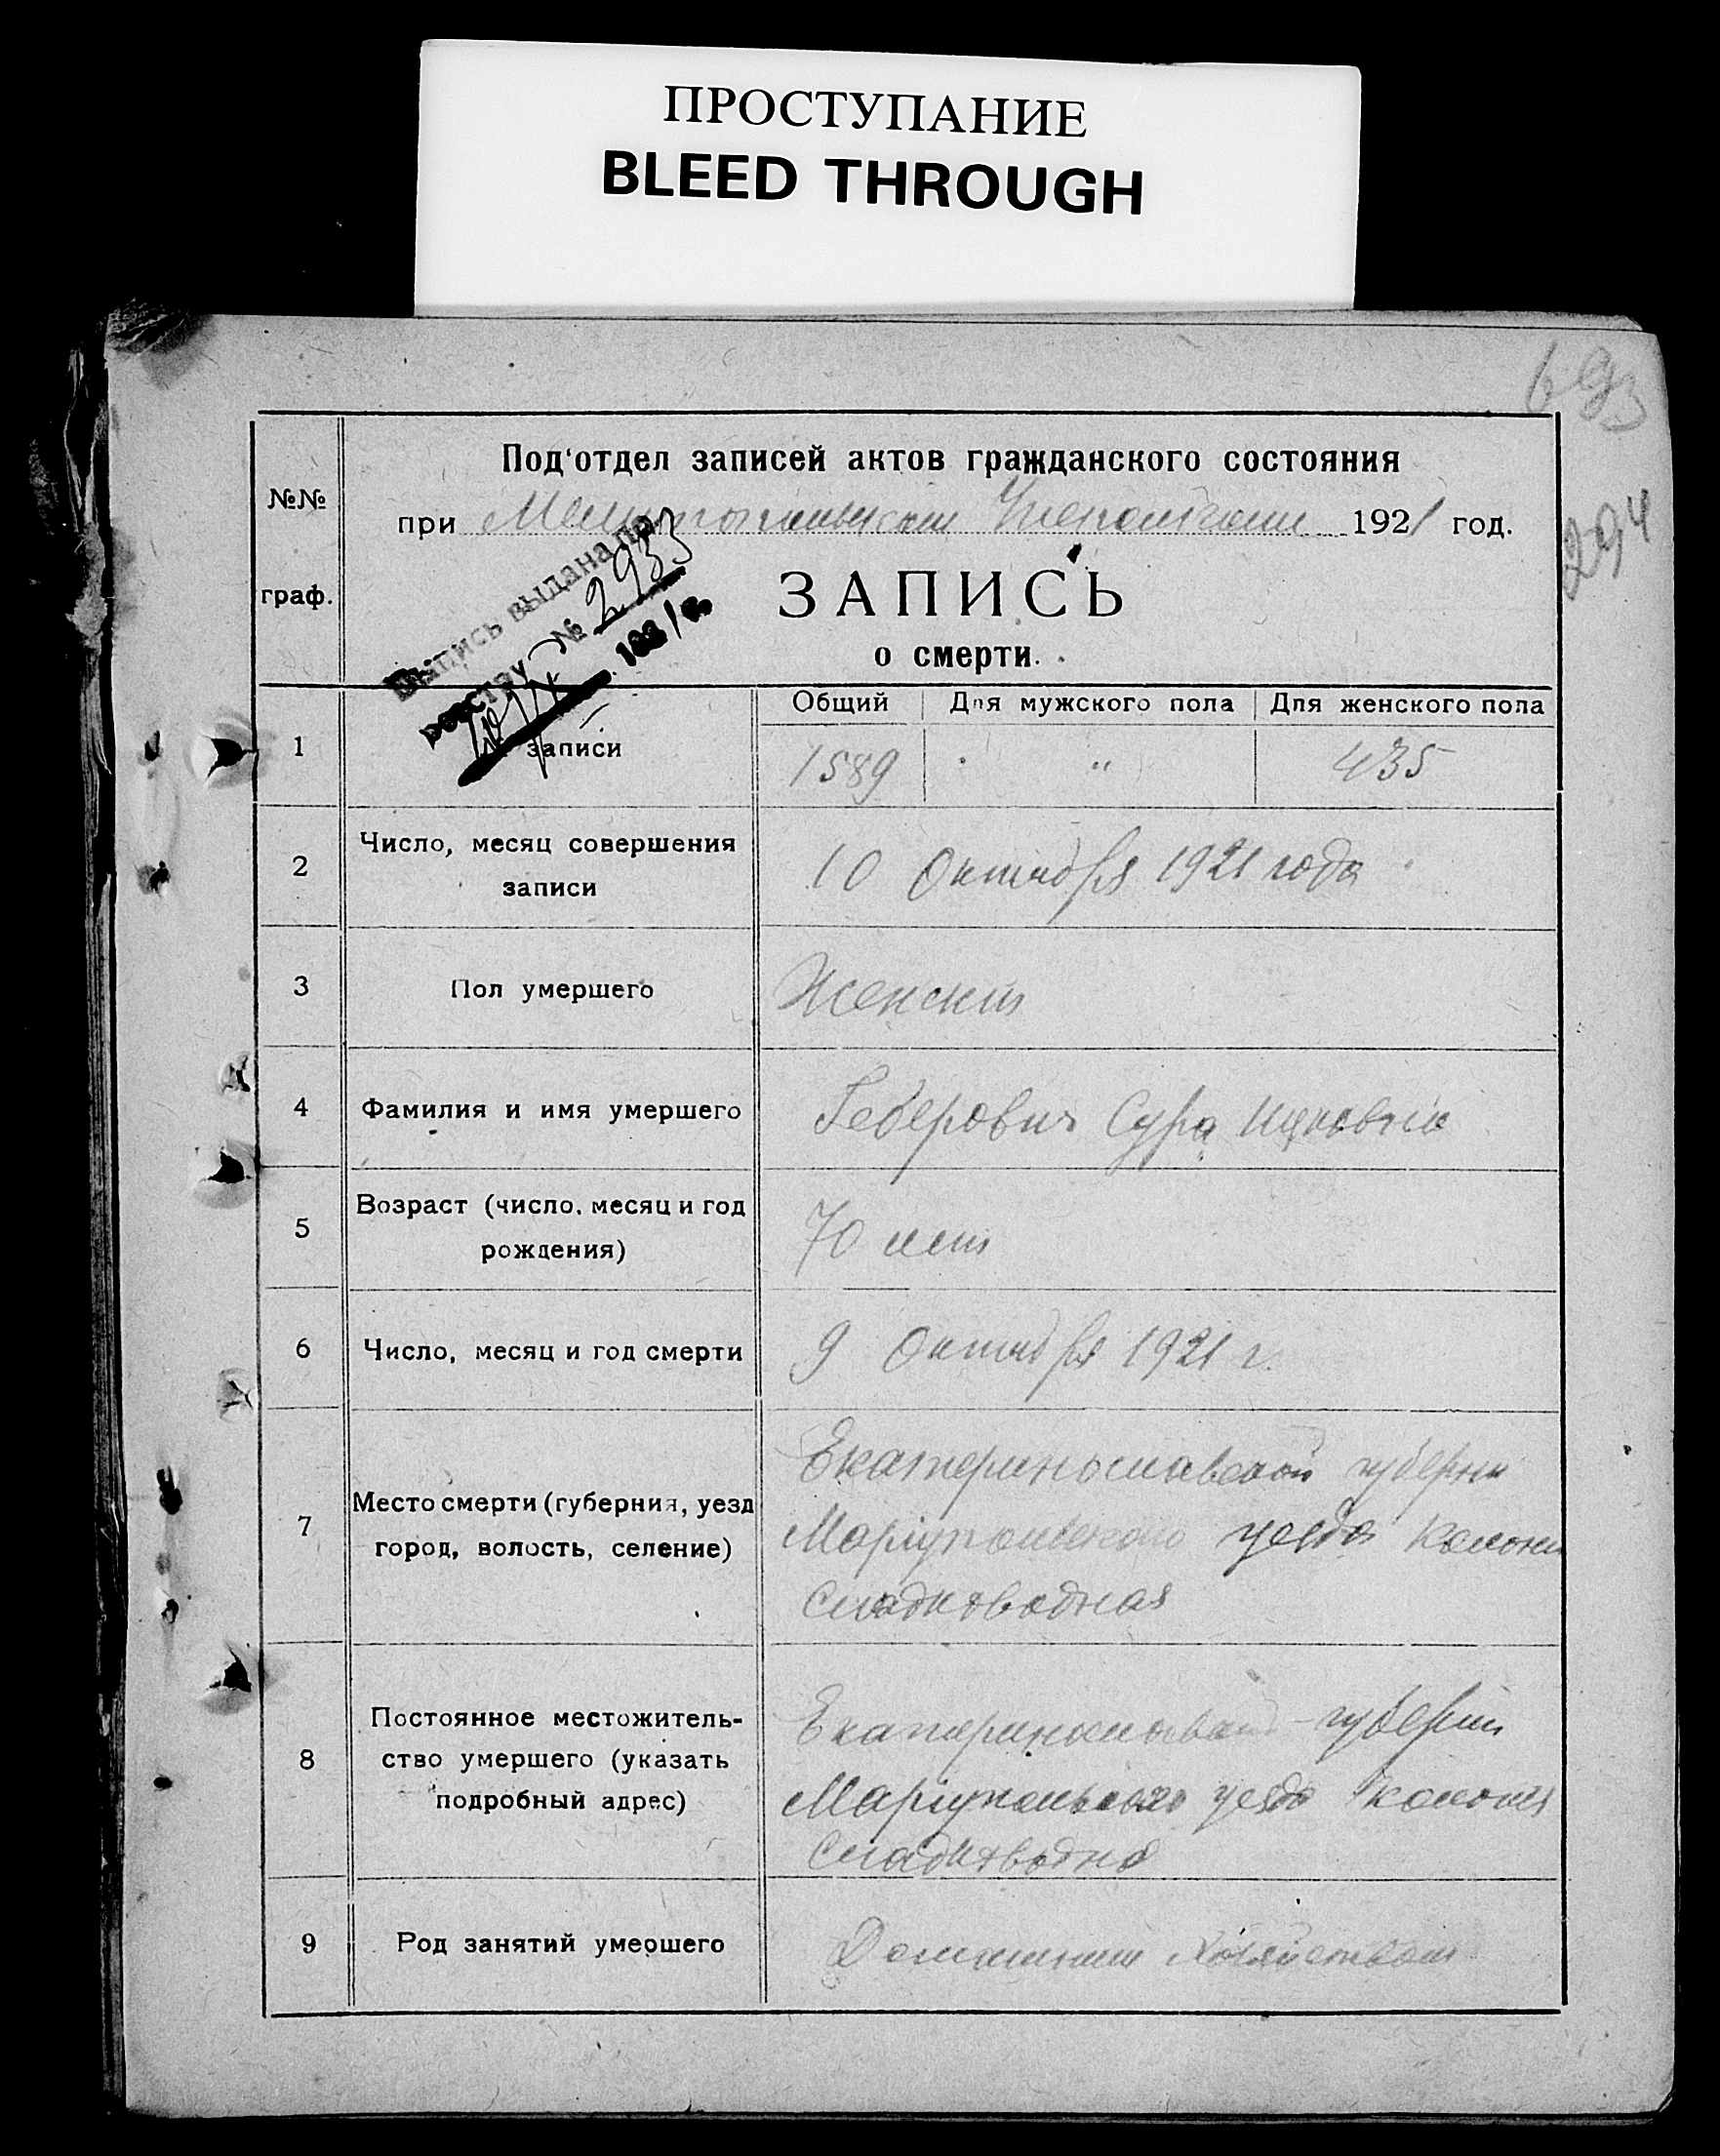 ПРОСТУПАНИЕ
BLEED THROUGH
693
294
№№
граф.
Под'отдел записей актов гражданского состояния
при Мелитопольском 1921 год.
ЗАПИСЬ
о смерти.
Выпись выдана по
реестру № 2933
Общий Для мужского пола Для женского пола
1 записи 1589 " 435
2 Число, месяц совершения
записи
10 Октября 1921 года
3 Пол умершего Женский
4 Фамилия и имя умершего Геберович Сура
5 Возраст (число, месяц и год
рождения)
70 лет
6 Число, месяц и год смерти 9 Октября 1921 г.
7 Место смерти (губерния, уезд
город, волость, селение)
Екатеринославской губерни
Мариупольского уезда колони
Сладководная
8 Постоянное местожитель-
ство умершего (указать
подробный адрес)
Екатеринославской губернии
Мариупольского уезда колония
Сладководно
9 Род занятий умершего Домашним хозяйством